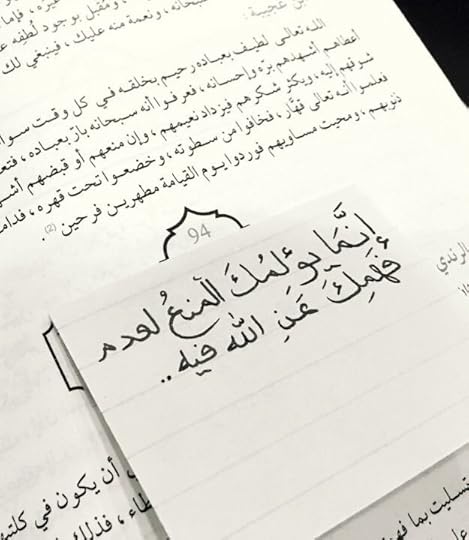 ابن عجيبة :
سبحانه ، ونعمة منه عليك ، فينبغي لك
الله تعالى لطيف بعباده رحيم بخلقه في كل وقت سوا
أعطاهم أشهدهم برّه وإحسانه ، فعرفوا أنه سبحانه بارّ بعباده ، فتع
شوقهم إليه ، ويكثر شكرهم فيزداد نعيمهم ، وإن منعهم أو قبضهم أشهـ
فعلموا أنه تعالى قهّار ، فخافوا من سطوته ، وخضعوا تحت قهره ، فداه
ذنوبهم ، ومحيت مساويهم فوردوا يوم القيامة مطهرين فرحين (2) .
94
إِنَّمَا يؤلمُكَ الْمنعُ لعدم
فَهْمِكَ عَنِ الله فيه ..
الرندي
أن يكون في كلتـ
طاء ، فذلك
تسليت بما فهم